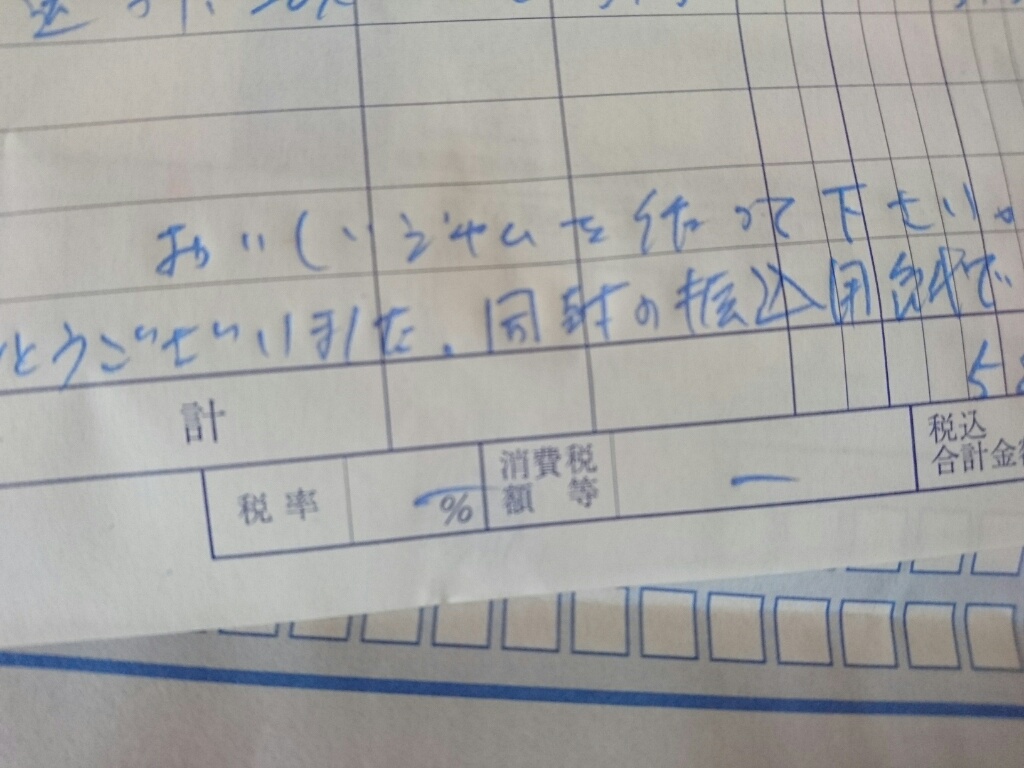 おいしいジャムを作って下さい。
とうございました。同封の振込用紙で
58
計
税率 - %
消費税額等 -
税込合計金額